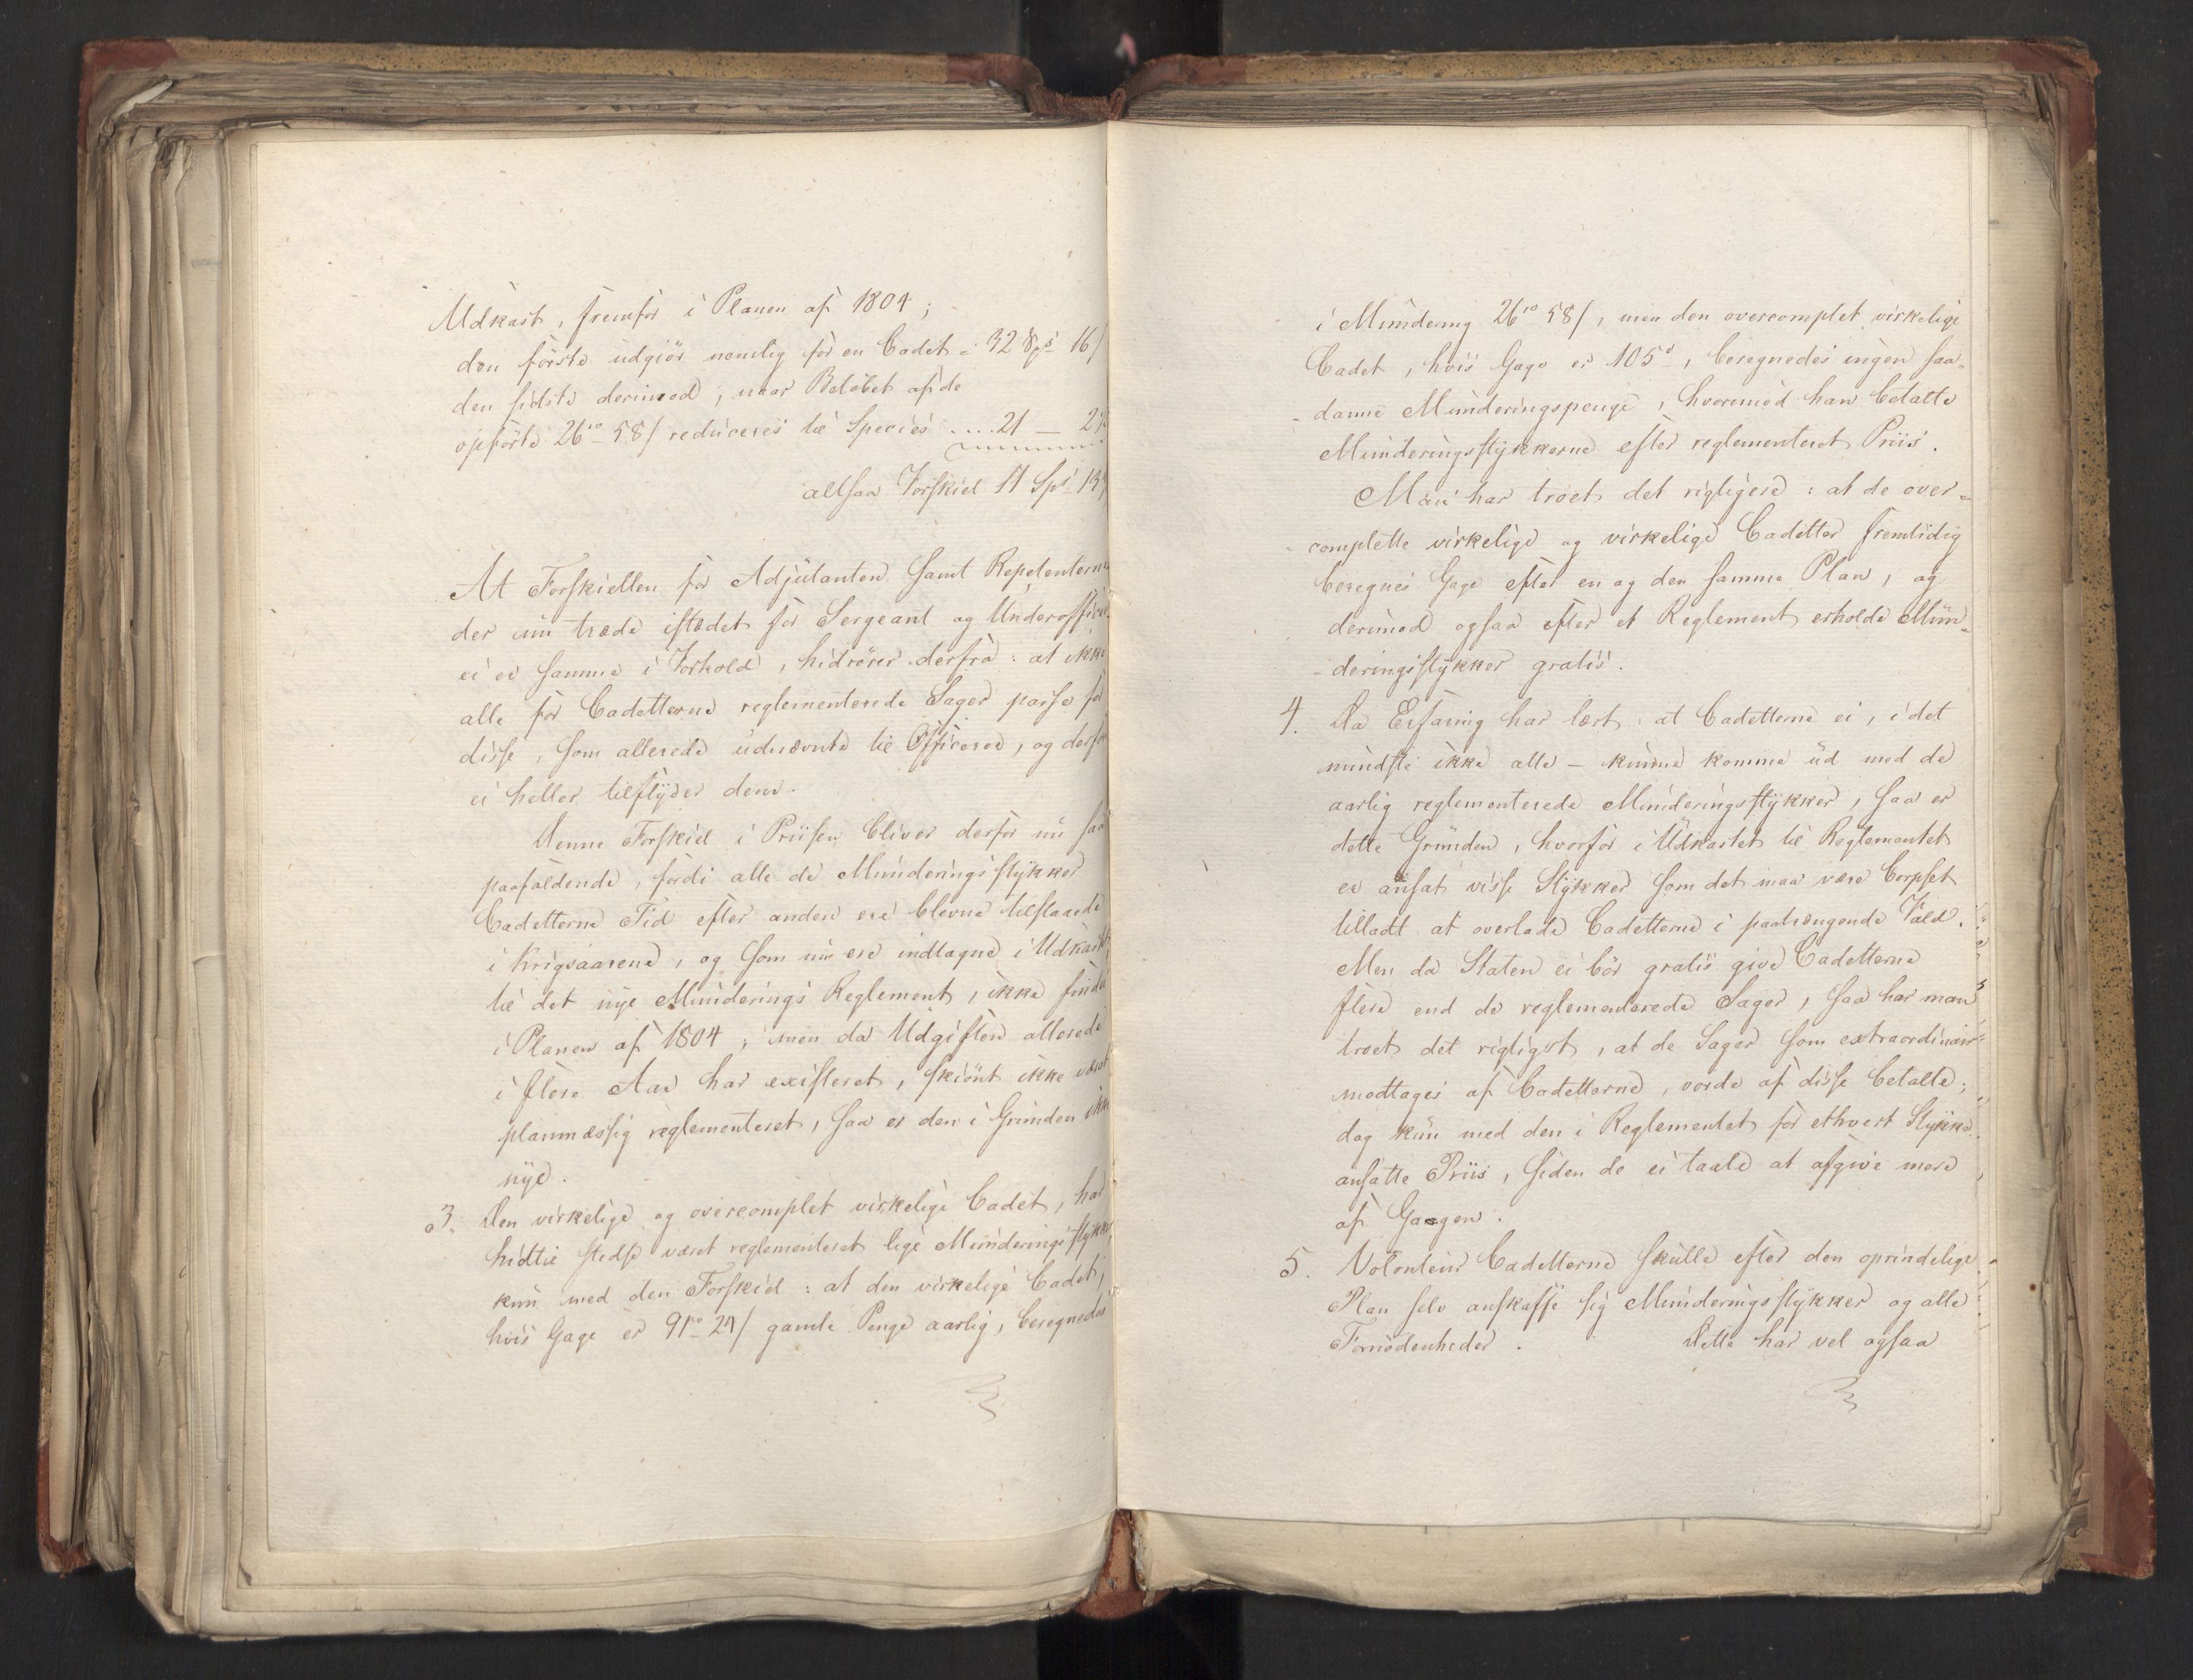 Udkast, fremfor i Planen af 1804;
den förste udgiör nemlig for en Cadet = 32 Sps 16/
den sidste derimod, naar Beløbet af de
opførte 26 rd 58/ reduceres til Species .... 21 — 2/
altsaa Forskiel 11 Sps 13/
At Forskiellen for Adjutanten samt Repetenterne
der nu træde istedet for Sergeant og Underofficer
ei er samme i Forhold, hidrører derfra: at ikke
alle for Cadetterne reglementerede Sager passe for
disse, som allerede udnævnte til Officerer, og derfor
ei heller tilflyder dem.
Denne Forskiel i Prisen bliver derfor nu saa
paafaldende, fordi alle de Munderingsstykker
Cadetterne Tid efter anden ere blevne tilstaaede
i Krigsaarene, og som nu ere indtagne i Udkastet
til det nye Munderings Reglement, ikke findes
i Planen af 1804; men da Udgiften allerede
i flere Aar har existeret, skiönt ikke været
planmæssig reglementeret, saa er den i Grunden ikke
nye.
3. Den virkelige og overcomplet virkelige Cadet, har
hidtil stedse været reglementeret lige Munderingsstykker
kun med den Forskiel: at den virkelige Cadet,
hvis Gage er 91 rd 24/ gamle Penge aarlig, beregnedes
i Mundering 26 rd 58/, men den overcomplet virkelige
Cadet, hvis Gage er 105 d, beregnedes ingen saa-
-danne Munderingspenge, hvorimod han betalte
Munderingsstykkerne efter reglementeret Priis.
Man har troet det rigtigere: at de over-
-complette virkelige og virkelige Cadetter fremtidig
beregnes Gage efter en og den samme Plan, og
derimod ogsaa efter et Reglement erholde Mun-
-deringsstykker gratis.
4. Da Erfaring har lært: at Cadetterne ei, i det
mindste ikke alle – kunne komme ud med de
aarlig reglementerede Munderingsstykker, saa er
dette Grunden, hvorfor i Udkastet til Reglementet
er ansat visse Stykker som det maa være Corpset
tilladt at overlade Cadetterne i paatrængende Fald.
Men da Staten ei bör gratis give Cadetterne
flere end de reglementerede Sager, saa har man
troet det rigtigst, at de Sager som extraordinair
modtages af Cadetterne, vorde af disse betalte;
dog kun med den i Reglementet for ethvert Stykke
ansatte Priis, siden de ei taale at afgive mere
af Gagen.
5. Volontair Cadetterne skulle efter den oprindelige
Plan selv anskaffe sig Munderingsstykker og alle
Fornödenheder. Dette har vel ogsaa